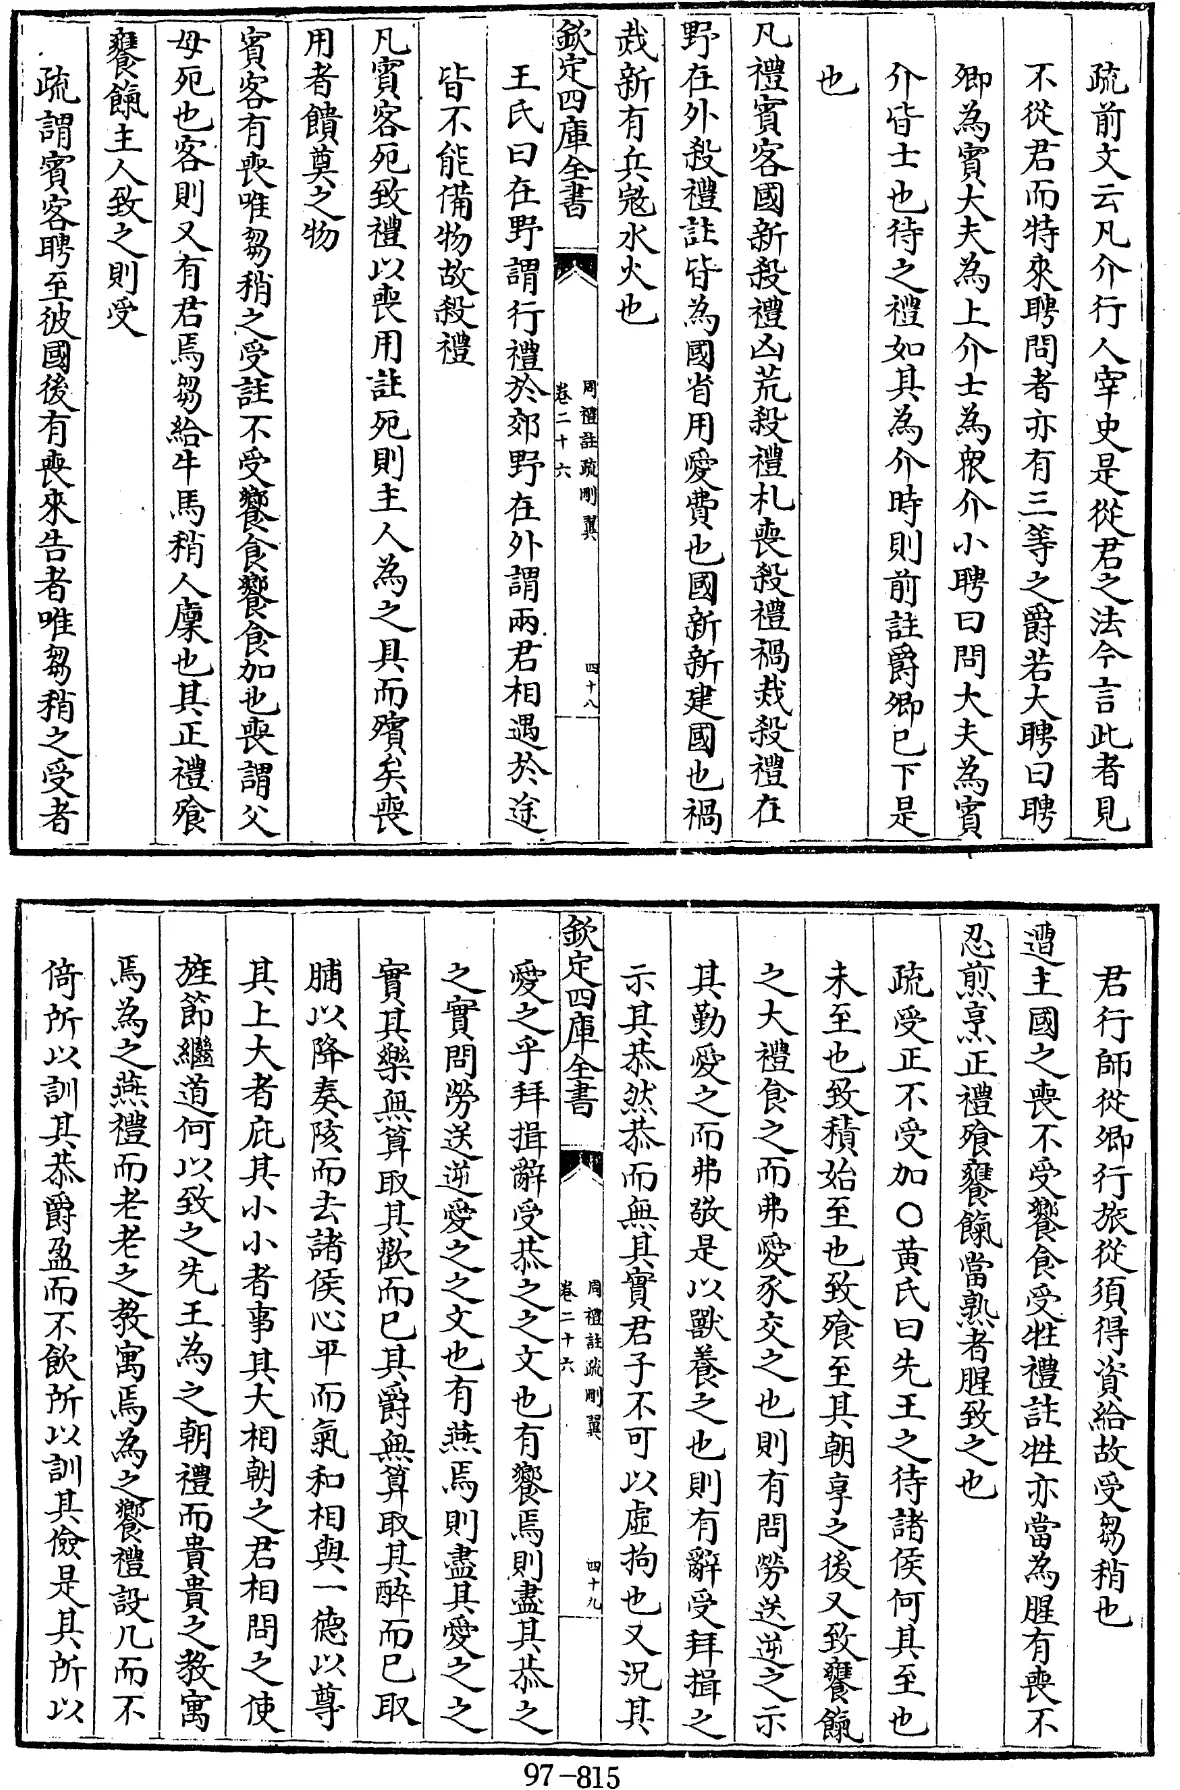 疏前文云凡介行人宰史是從君之法今言此者見
不從君而特來聘問者亦有三等之爵若大聘曰聘
卿為賓大夫為上介士為衆介小聘曰問大夫為賓
介皆士也待之禮如其為介時則前註爵卿已下是
也
凡禮賓客國新殺禮凶荒殺禮札喪殺禮禍烖殺禮在
野在外殺禮註皆為國省用愛費也國新新建國也禍
烖新有兵寇水火也
欽定四庫全書
周禮註疏刪翼
卷二十六
四十八
王氏曰在野謂行禮於郊野在外謂兩君相遇於途
皆不能備物故殺禮
凡賓客死致禮以喪用註死則主人為之具而殯矣喪
用者饋奠之物
賓客有喪唯芻稍之受註不受饗食饗食加也喪謂父
母死也客則又有君焉芻給牛馬稍人稟也其正禮飧
饔餼主人致之則受
疏謂賓客聘至彼國後有喪來告者唯芻稍之受者
君行師從卿行旅從須得資給故受芻稍也
遭主國之喪不受饗食受牲禮註牲亦當為腥有喪不
忍煎烹正禮飧饔餼當熟者腥致之也
疏受正不受加○黄氏曰先王之待諸侯何其至也
未至也致積始至也致飧至其朝享之後又致饔餼
之大禮食之而弗愛豕交之也則有問勞送逆之示
其勤愛之而弗敬是以獸養之也則有辭受拜揖之
示其恭然恭而無其實君子不可以虛拘也又況其
欽定四庫全書
周禮註疏刪翼
卷二十六
四十九
愛之乎拜揖辭受恭之之文也有饗焉則盡其恭之
之實問勞送逆愛之之文也有燕焉則盡其愛之之
實其樂無算取其歡而已其爵無算取其醉而已取
脯以降奏陔而去諸侯心平而氣和相與一德以尊
其上大者庇其小小者事其大相朝之君相問之使
旌節繼道何以致之先王為之朝禮而貴貴之教寓
焉為之燕禮而老老之教寓焉為之饗禮設几而不
倚所以訓其恭爵盈而不飲所以訓其儉是其所以
97-815